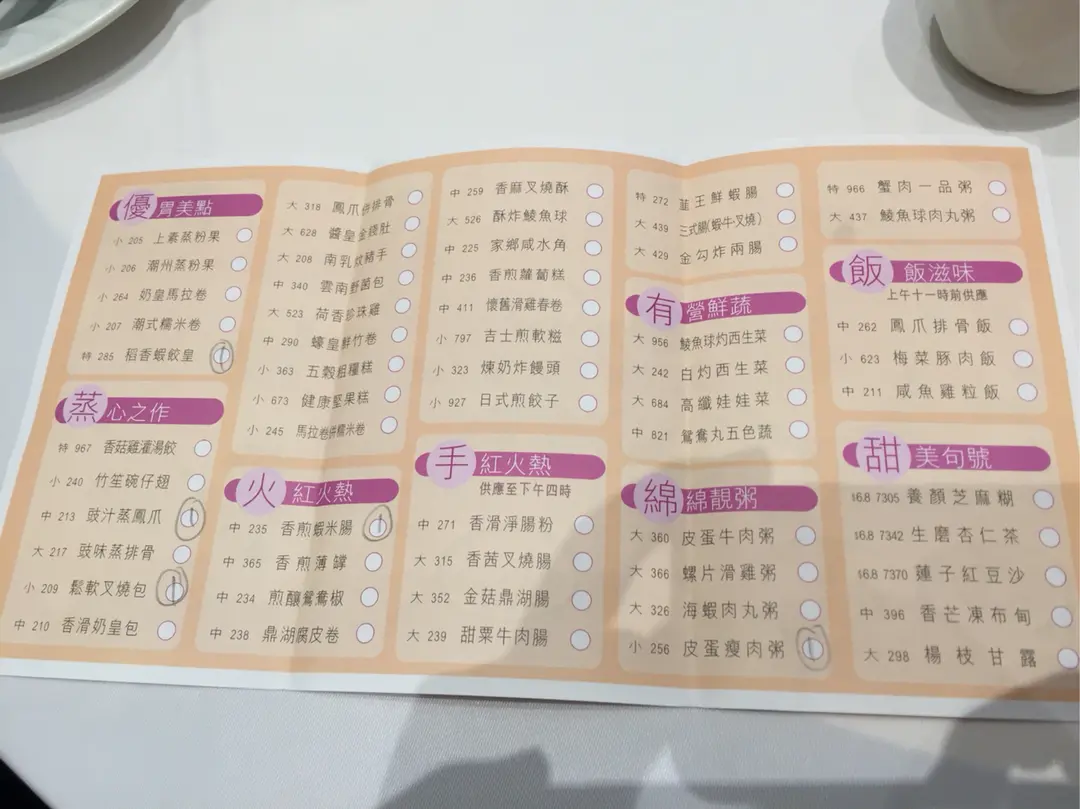 優胃美點
小 205 上素蒸粉果
小 206 潮州蒸粉果
小 264 奶皇馬拉卷
小 207 潮式糯米卷
特 285 稻香蝦餃皇 1
蒸心之作
特 967 香菇雞灌湯餃
小 240 竹笙碗仔翅
中 213 豉汁蒸鳳爪 1
大 217 豉味蒸排骨
小 209 鬆軟叉燒包 1
中 210 香滑奶皇包
大 318 鳳爪拼排骨
大 628 醬皇金錢肚
大 208 南乳炆豬手
中 340 雲南野菌包
大 523 荷香珍珠雞
中 290 蠔皇鮮竹卷
小 363 五穀粗糧糕
小 673 健康堅果糕
小 245 馬拉卷拼糯米卷
火紅火熱
中 235 香煎蝦米腸 1
中 365 香煎薄罉
中 234 煎釀鴛鴦椒
中 238 鼎湖腐皮卷
中 259 香麻叉燒酥
大 526 酥炸鯪魚球
中 225 家鄉咸水角
中 236 香煎蘿蔔糕
中 411 懷舊滑雞春卷
小 797 吉士煎軟糍
小 323 煉奶炸饅頭
小 927 日式煎餃子
手紅火熱
供應至下午四時
中 271 香滑淨腸粉
大 315 香茜叉燒腸
大 352 金菇鼎湖腸
大 239 甜粟牛肉腸
特 272 韮王鮮蝦腸
大 439 三式腸(蝦牛叉燒)
大 429 金勾炸兩腸
有營鮮蔬
大 956 鯪魚球灼西生菜
大 242 白灼西生菜
大 684 高纖娃娃菜
中 821 鴛鴦丸五色蔬
綿綿靚粥
大 360 皮蛋牛肉粥
大 366 螺片滑雞粥
大 326 海蝦肉丸粥
小 256 皮蛋瘦肉粥 1
特 966 蟹肉一品粥
大 437 鯪魚球肉丸粥
飯飯滋味
上午十一時前供應
中 262 鳳爪排骨飯
小 623 梅菜豚肉飯
中 211 咸魚雞粒飯
甜美句號
$6.8 7305 養顏芝麻糊
$6.8 7342 生磨杏仁茶
$6.8 7370 蓮子紅豆沙
中 396 香芒凍布甸
大 298 楊枝甘露